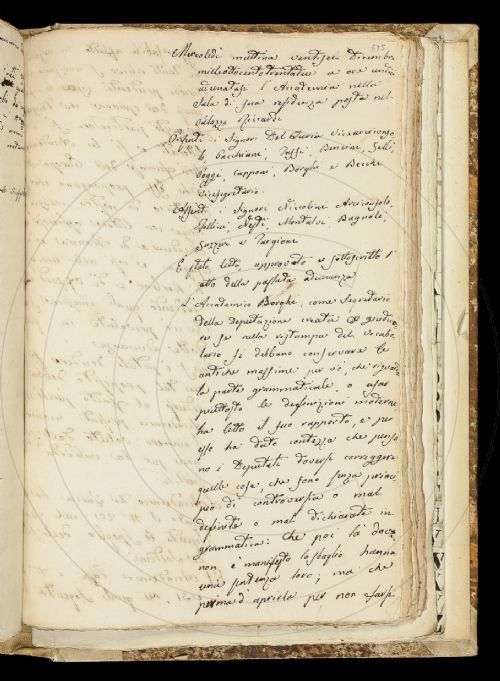 675
Mercoledì mattina ventisei Dicembre
milleottocentotrentadue a ore undici
adunatasi l'Accademia nella
Sala di sua residenza posta nel
Palazzo Riccardi
Presenti i Signori Del Furia Vicearciconso
lo, Bencini, Zelli
Poggi, Capponi, Borghi e Becchi
Vicesegretario.
Assenti i Signori Niccolini Arciconsolo,
Nesti, Montalvi, Bagnoli,
e Targioni
È stato letto, approvato e sottoscritto l'
atto della passata adunanza
L'Accademico Borghi, come Segretario
della Deputazione creata a giudica
re se nella ristampa del Vocabo
lario si debbano conservare le
antiche massime per ciò, che riguarda
la parte grammaticale, o usar
piuttosto le definizioni moderne
ha letto il suo rapporto, e per
esso ha dato contezza che pensa
no i Deputati doversi correggere
quelle cose, che sono senza princi
pio di controversia o mal
definite o mal dichiarate in
grammatica: che poi là dove
non è manifesto lo sbaglio hanno
una sentenza loro; ma che
prima d'aprirla per non farsi